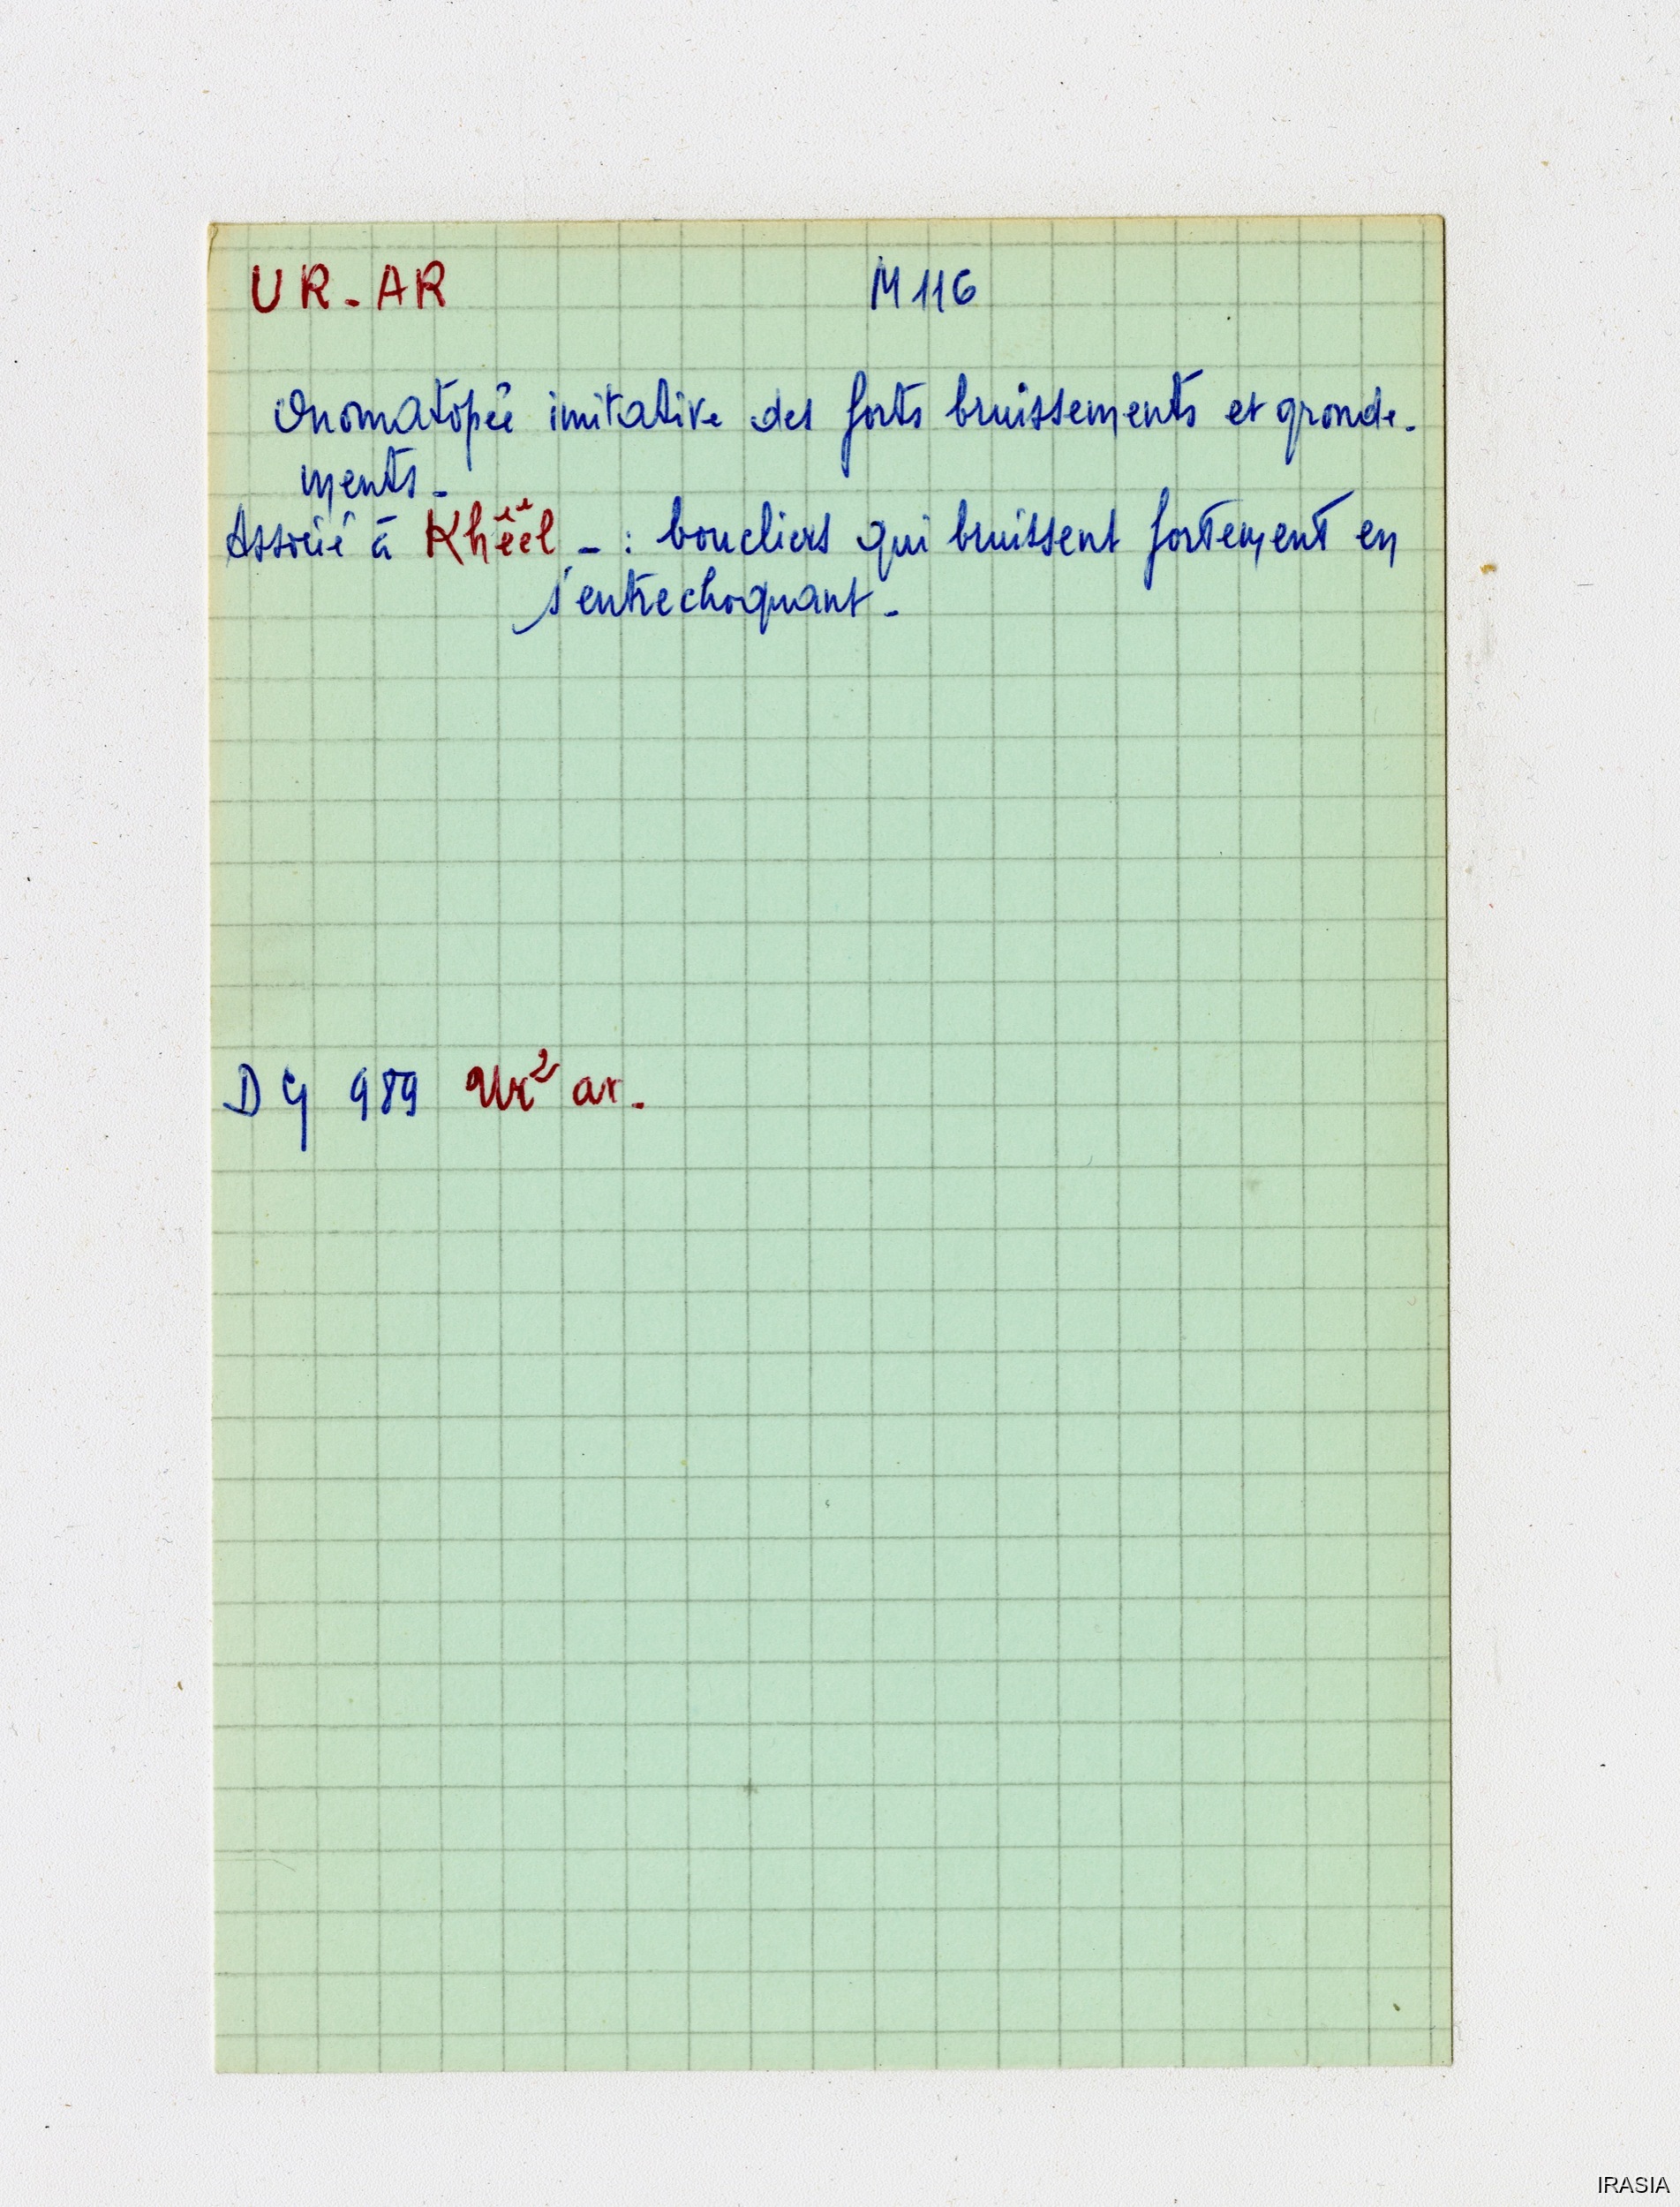 UR-AR M 116
Onomatopée imitative des forts bruissements et gronde-
ments -
Associé à Khêêl - : boucliers qui bruissent fortement en
s'entrechoquant -
DG 989 Ur² ar.
IRASIA